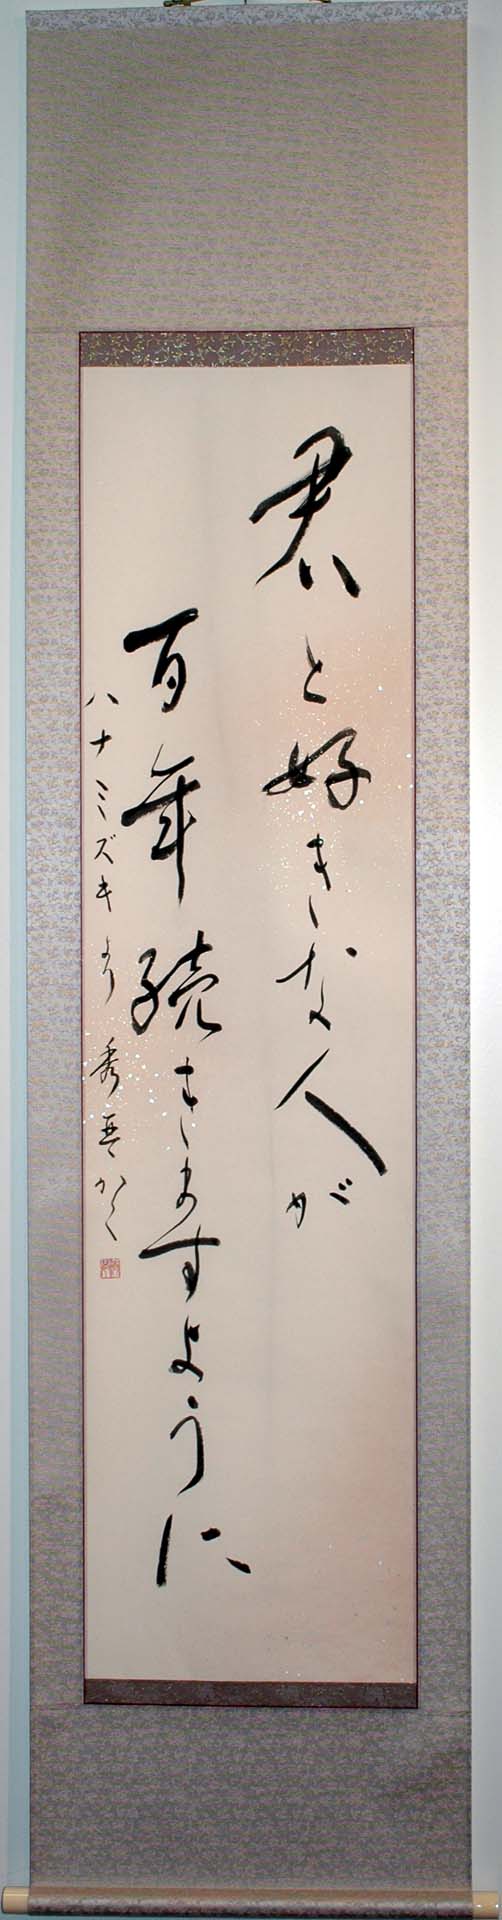 君と好きな人が
百年続きますように
ハナミズキより 秀吾かく